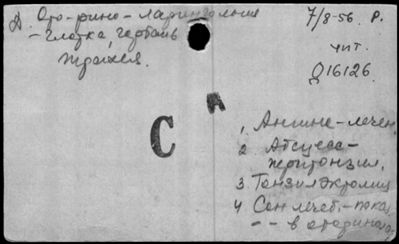 Ото-рино-ларингология
- глотка, гортань
трахея.
7/8-56. Р.
чит.
016126
С
1. Ангина-лечен
2. Абсцесс-
перитонзил.
3. Тонзилэктомия
4 Сон лечеб.-пока
-"- в оторинол